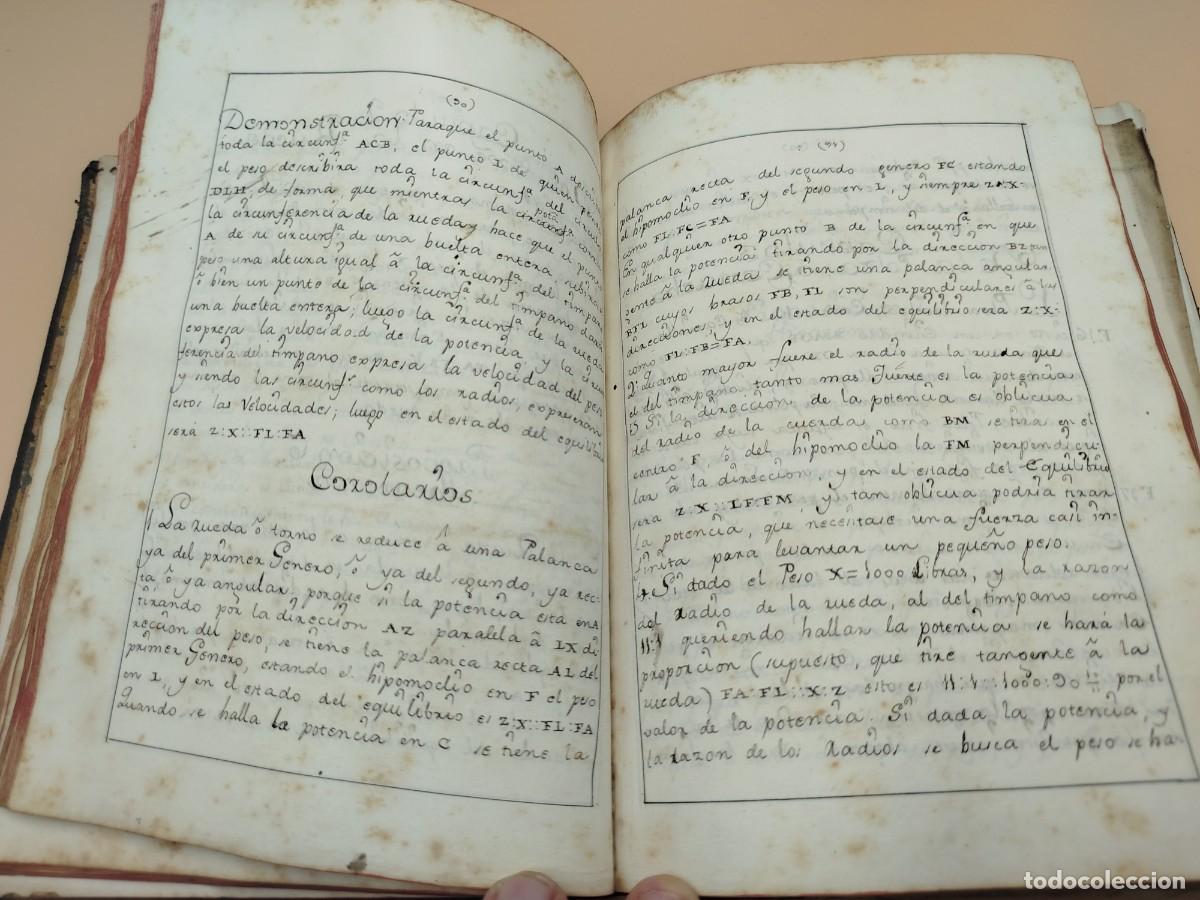 (90)
Demonstracion. Paraque el punto A
toda la circunf.ª ACB, el punto I de quien
el peso describira toda la circunf.ª del
DLH, de forma, que mientras la circunf.ª
la circunferencia de la rueda y hace que el punto
A de su circunf.ª de una buelta entera subira
peso una altura igual â la circunf.ª del timpano
ô bien un punto de la circunf.ª del timpano dara
una buelta entera; luego la circunf.ª de la rueda
expresa la velocidad de la potencia, y la circun
ferencia del timpano expresa la velocidad del peso
y siendo las circunf.ª como los radios, expresaran
estos las Velocidades; luego en el estado del equilibrio
sera Z:X::FL:FA
Corolarios
1 La rueda ô torno se reduce â una Palanca
ya del primer Genero, ô ya del segundo, ya rec-
ta ô ya angular, porque si la potencia esta en A
tirando por la direccion AZ paralela â IX di-
reccion del peso, se tiene la palanca recta AI del
primer Genero, estando el hipomoclio en F el peso
en I, y en el estado del equilibrio es Z:X::FL:FA
Quando se halla la potencia en C se tiene la
(91)
palanca recta del segundo genero FC estando
el hipomoclio en F, y el peso en I, y siempre Z:X::
como FL:FC=FA
En qualquier otro punto B de la circunf.ª en que
se halla la potencia tirando por la direccion BZ tan
gente â la rueda se tiene una palanca angular
BFI cuyos brasos FB, FI son perpendiculares â las
direcciones, y en el estado del equilibrio sera Z:X::
como FL:FB=FA.
2.º Quanto mayor fuere el radio de la rueda que
el del timpano tanto mas fuerte es la potencia
3 Si la direccion de la potencia es oblicua
al radio de la cuerda como BM se tira en el
centro F, ô del hipomoclio la FM perpendicu-
lar â la direccion, y en el estado del Equilibrio
sera Z:X::LF:FM y tan oblicua podria tirar
la potencia, que necesitase una fuerza casi in-
finita para levantar un pequeño peso.
4. Si dado el Peso X=1000 Libras, y la razon
del Radio de la rueda, al del timpano como
11:1 queriendo hallar la potencia se hará la
proporcion (supuesto, que tire tangente â la
rueda) FA:FL::X:Z esto es 11:1::1000:90 10/11 por el
valor de la potencia. Si dada la potencia, y
la razon de los Radios se busca el peso se ha-
todocoleccion